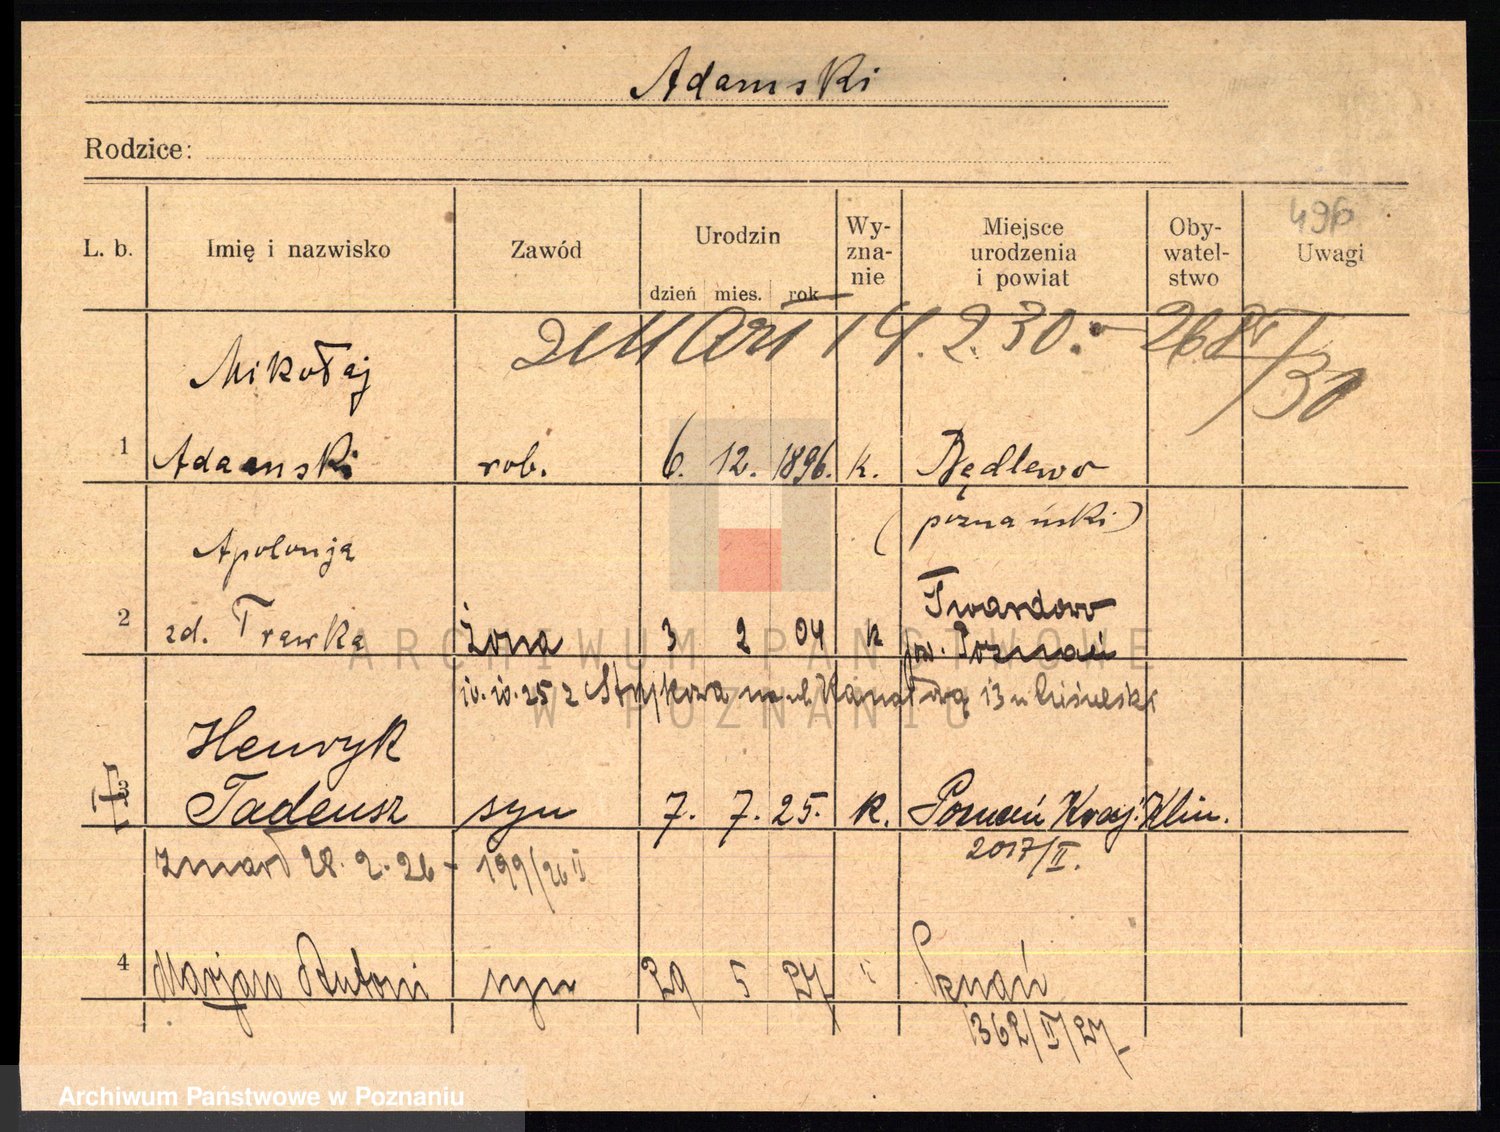 Adamski
Rodzice:
49
L. b. Imię i nazwisko Zawód Urodzin dzień mies. rok Wyznanie Miejsce urodzenia i powiat Obywatelstwo Uwagi
zmarł 14.2.30.- 268 IV/30
Mikołaj
1 Adamski rob. 6. 12. 1896. k. Będlewo
(poznański)
Apolonja
2 zd. Trawka żona 3 2 04 k Twardowo
pow. Poznań
10.10.25 z Strykowa na ul. Kanałową 13 u
Henryk
3 Tadeusz syn 7. 7. 25. k. Poznań Kraj. Klin.
2017/II.
zmarł 28.2.26 - 199/26 II
4 Marjan Antoni syn 29 5 27 " Poznań
1362/II/27
ARCHIWUM PAŃSTWOWE
W POZNANIU
Archiwum Państwowe w Poznaniu